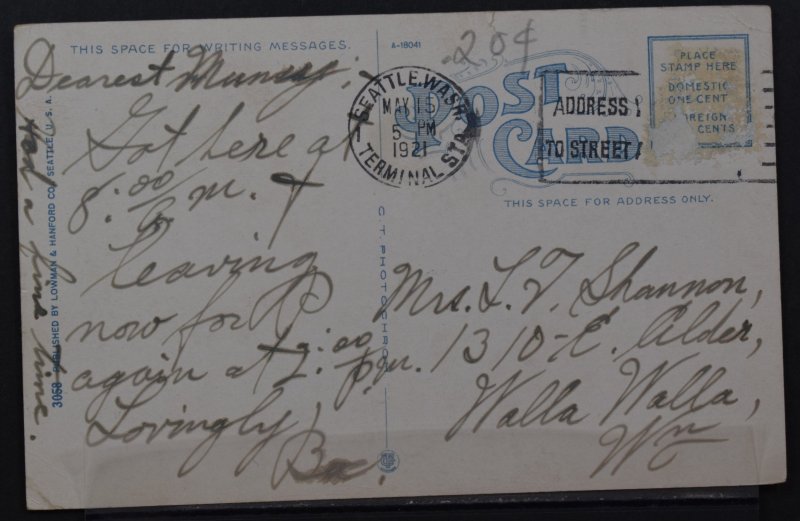 THIS SPACE FOR WRITING MESSAGES.
A-18041
-20¢
Dearest
Got here at
8:00 m. &
leaving
now for P
again at 2:00 p.m.
Lovingly,
Had a fine time.
3058 PUBLISHED BY LOWMAN & HANFORD CO., SEATTLE, U. S. A.
C.T. PHOTOCHROM
SEATTLE, WASH.
MAY 15
5 PM
1921
TERMINAL STA.
POST CARD
ADDRESS
TO STREET
PLACE
STAMP HERE
DOMESTIC
ONE CENT
FOREIGN
CENTS
THIS SPACE FOR ADDRESS ONLY.
Mrs. L. T. Shannon,
1310-E. Alder,
Walla Walla,
Wn